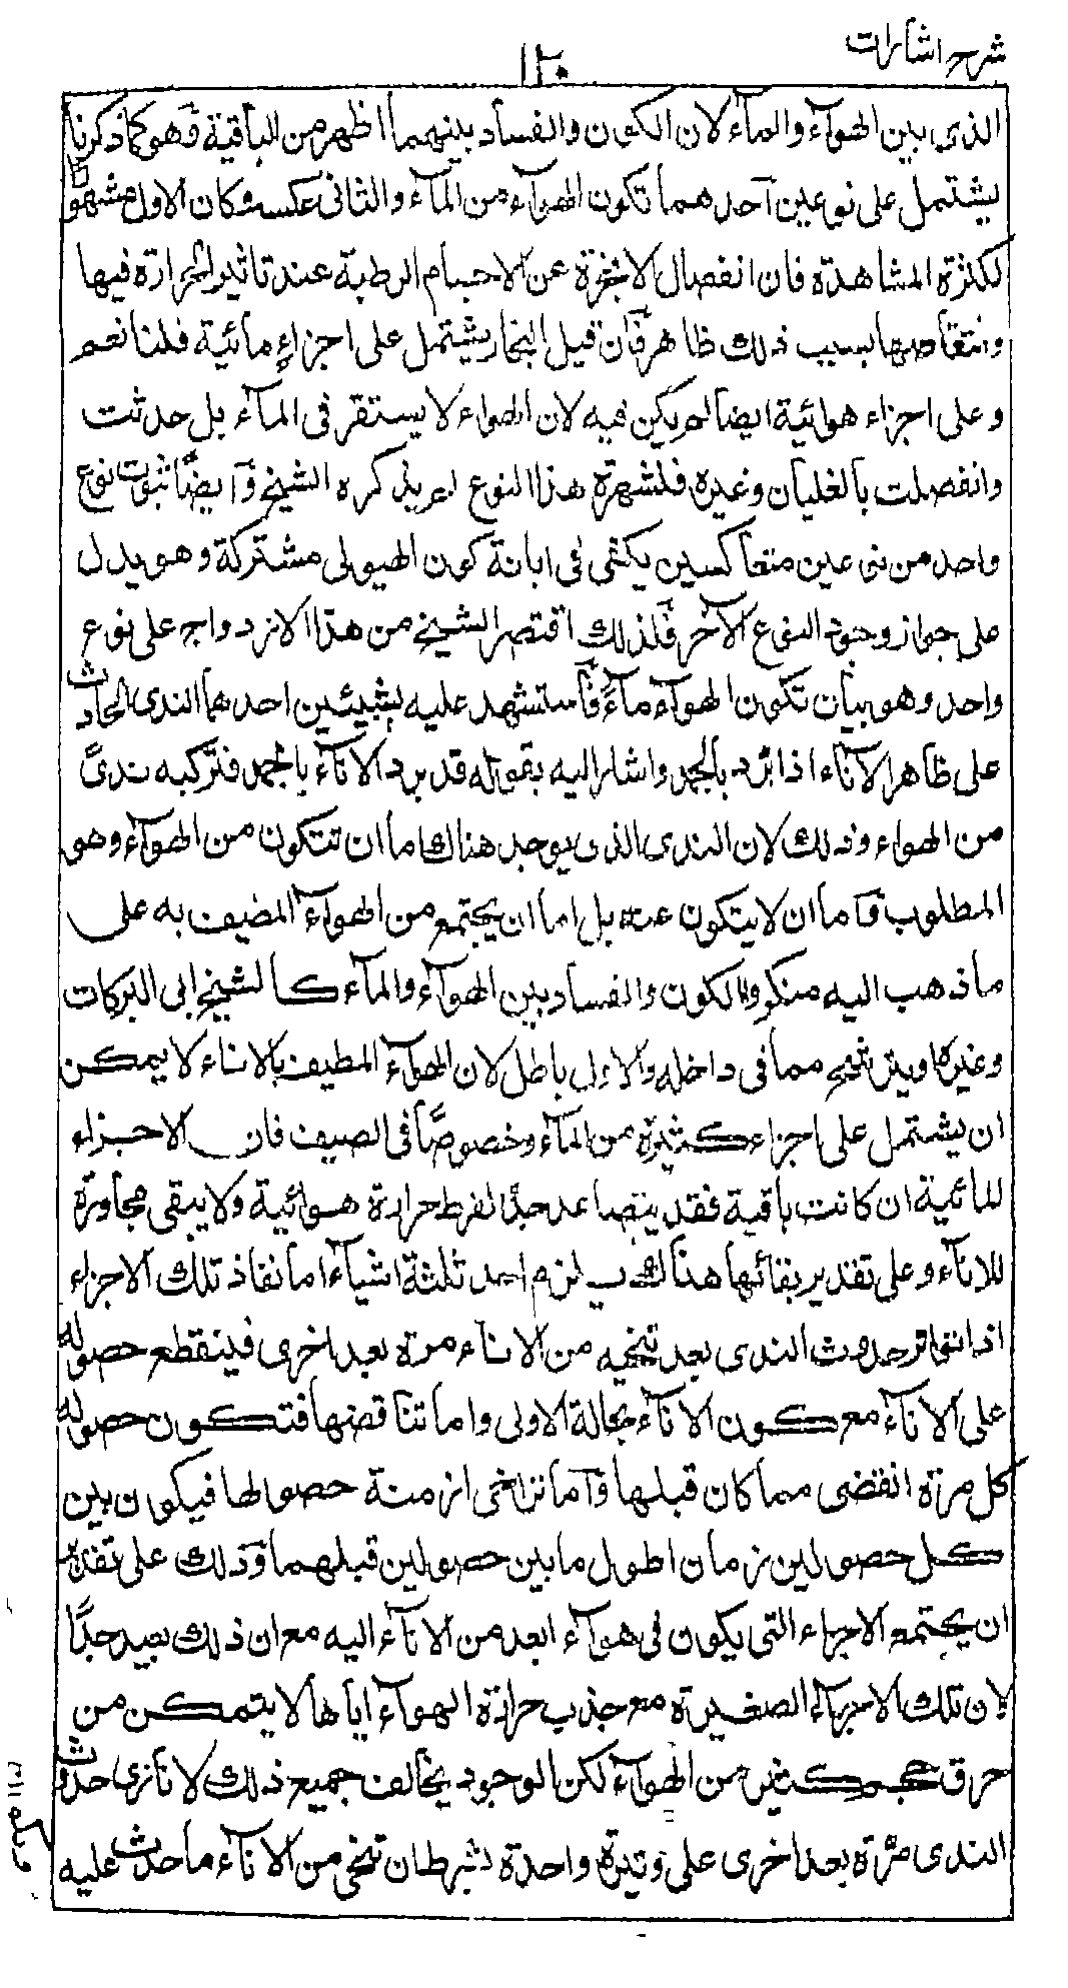 شرح اشارات
١٢٠
الذى بين الهوآء والمآء لان الكون والفساد بينهما اظهر من الباقية وهو كما ذكرنا
يشتمل على نوعين احدهما تكون الهوآء من المآء والثانى عكسه وكان الاول مشهورا
لكثرة المشاهدة فان انفصال الابخرة عن الاجسام الرطبة عند تاثير الحرارة فيها
وانتقاصها بسبب ذلك ظاهر فان قيل البخار يشتمل على اجزاء مائية قلنا نعم
وعلى اجزاء هوائية ايضا لم يكن فيه لان الهواء لا يستقر فى المآء بل حدثت
وانفصلت بالغليان وغيره فلشهرة هذا النوع لم يذكره الشيخ وآيضًا ثبوت نوع
واحد من نوعين متعاكسين يكفى فى ابانة كون الهيولى مشتركة وهو يدل
على جواز وجود النوع الآخر فلذلك اقتصر الشيخ من هذا الازدواج على نوع
واحد وهو بيان تكون الهوآء مآءً فاستشهد عليه بشيئين احدهما الندى الحادث
على ظاهر الانآء اذا برد بالجمد واشار اليه بقوله قد يبرد الانآء بالجمد فتركبه ندىً
من الهواء وذلك لان الندى الذى يوجد هناك اما ان تتكون من الهوآء وهو
المطلوب واما ان لا يتكون عنه بل اما ان يجتمع من الهوآء المضيف به على
ما ذهب اليه منكروا الكون والفساد بين الهوآء والمآء كالشيخ ابى البركات
وغيره او يترشح مما فى داخله والاول باطل لان الهوآء المطيف بالاناء لا يمكن
ان يشتمل على اجزاء كثيرة من المآء وخصوصًا فى الصيف فان الاجزاء
المائية ان كانت باقية فقد يتصاعد جدًا لفرط حرارة هوائية ولا يبقى مجاورة
للانآء وعلى تقدير بقائها هناك يلزم احد ثلثة اشيآء اما نفاذ تلك الاجزاء
اذا تواتر حدوث الندى بعد تنحيه من الاناء مرة بعد اخرى فينقطع حصوله
على الانآء مع كون الانآء بحالة الاولى واما تناقضها فتكون حصوله
كل مرة انقضى مما كان قبلها وآما تراخى ازمنة حصولها فيكون بين
كل حصولين زمان اطول ما بين حصولين قبلهما وذلك على تقدير
ان يجتمع الاجزاء التى يكون فى هوآء ابعد من الانآء اليه مع ان ذلك بعيد جدًا
لان تلك الاجزاء الصغيرة مع جذب حرارة الهوآء اياها لا يتمكن من
خرق حجم كثير من الهوآء لكن الوجود يخالف جميع ذلك لانا نرى حدوث
الندى مرّة بعد اخرى على وتيرة واحدة بشرط ان تنحى من الانآء ما حدث عليه